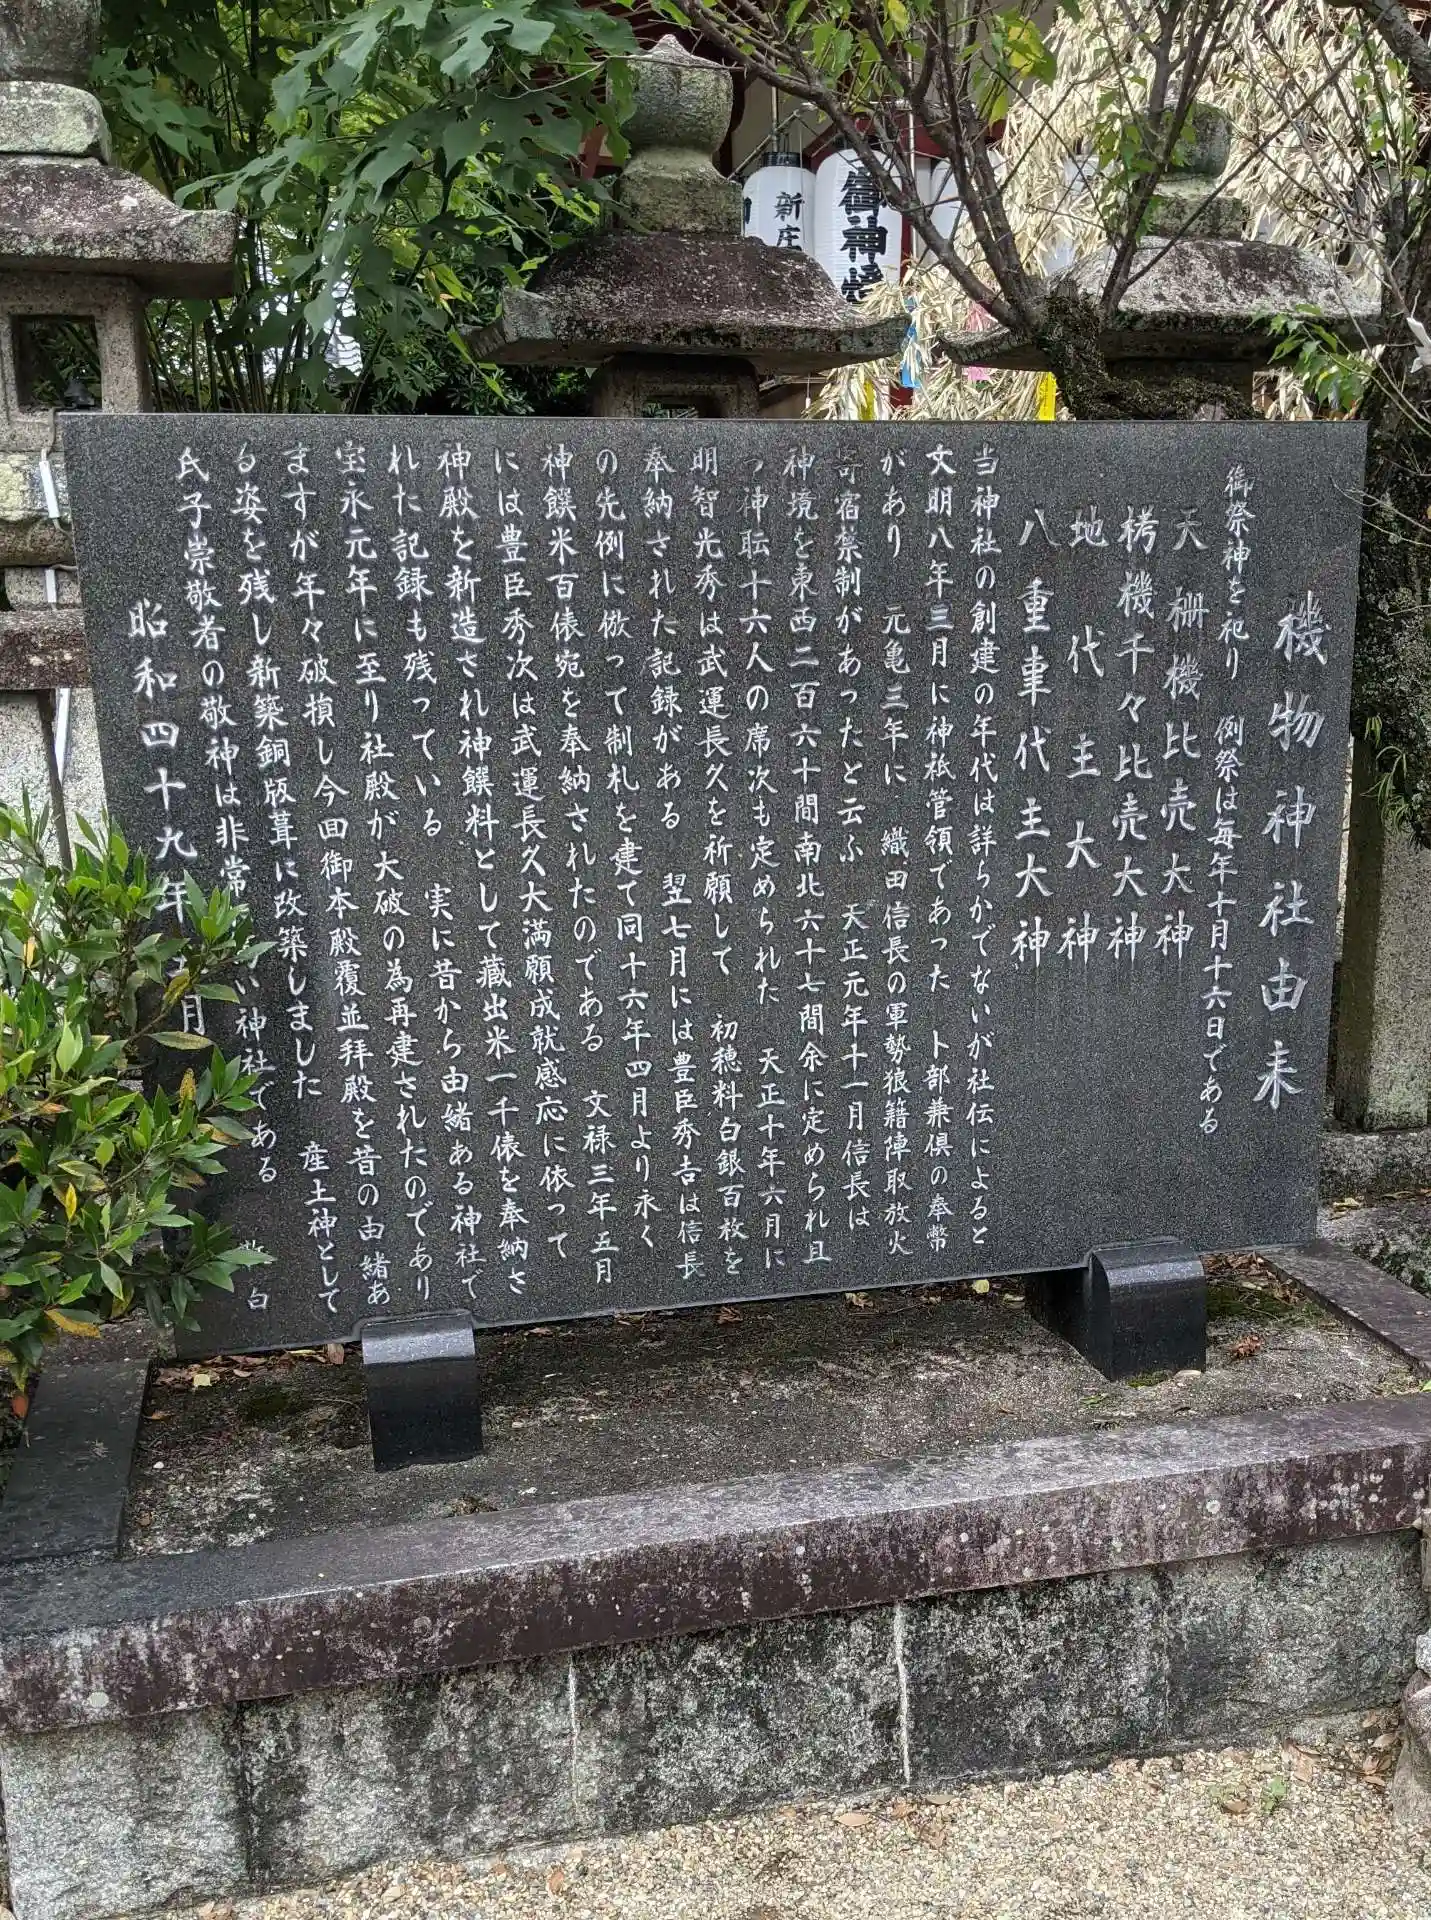 機物神社由来
御祭神を祀り 例祭は毎年十月十六日である
天棚機比売大神
栲機千々比売大神
地代主大神
八重事代主大神
当神社の創建の年代は詳らかでないが社伝によると
文明八年三月に神祇管領であった卜部兼倶の奉幣
があり 元亀三年に 織田信長の軍勢狼籍陣取放火
寄宿禁制があったと云ふ 天正元年十一月信長は
神境を東西二百六十間南北六十七間余に定められ且
つ神耘十六人の席次も定められた 天正十年六月に
明智光秀は武運長久を祈願して 初穂料白銀百枚を
奉納された記録がある 翌七月には豊臣秀吉は信長
の先例に倣って制札を建て同十六年四月より永く
神饌米百俵宛を奉納されたのである 文禄三年五月
には豊臣秀次は武運長久大満願成就感応に依って
神殿を新造され神饌料として蔵出米一千俵を奉納さ
れた記録も残っている 実に昔から由緒ある神社で
宝永元年に至り社殿が大破の為再建されたのであり
ますが年々破損し今回御本殿覆並拝殿を昔の由緒あ
る姿を残し新築銅版葺に改築しました 産土神として
氏子崇敬者の敬神は非常 い神社である
昭和四十九年 月
敬白
新庄
御神燈